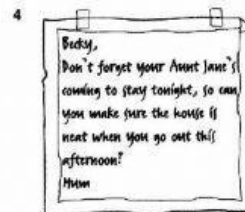 4
Becky,
Don't forget your Aunt Jane's
coming to stay tonight, so can
you make sure the house is
neat when you go out this
afternoon?
Mum